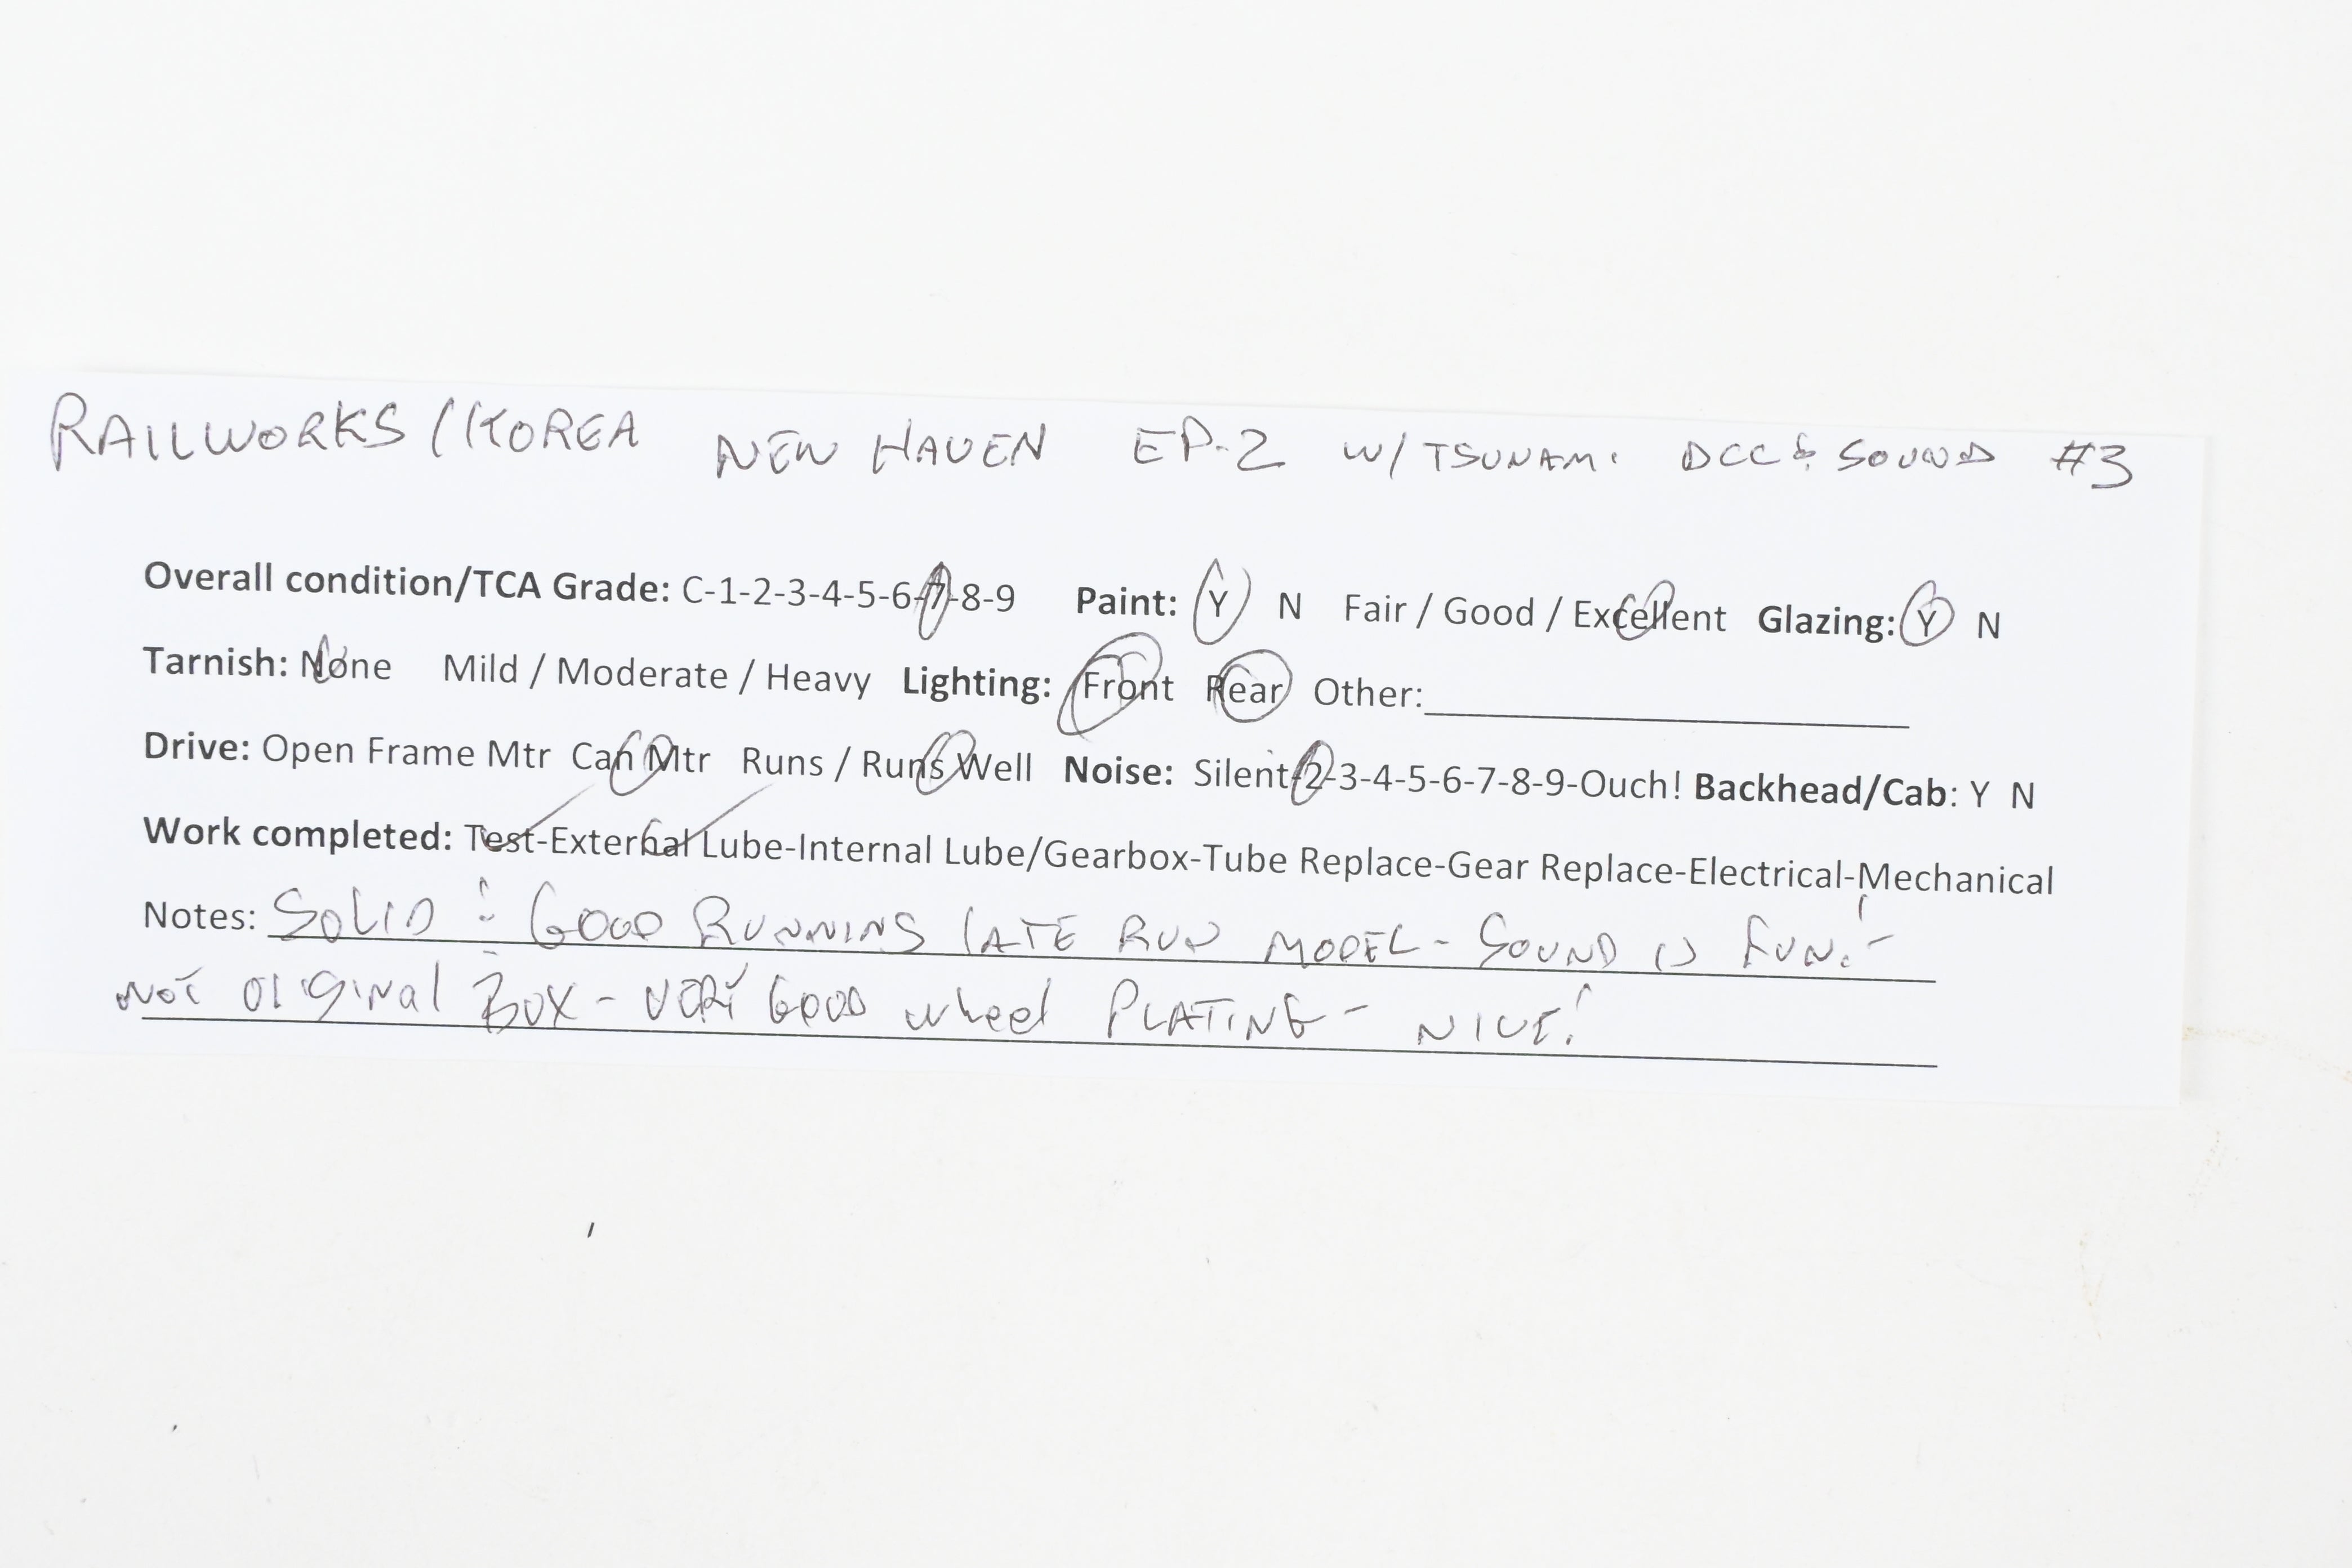 RAILWORKS / KOREA NEW HAVEN EP-2 W/ TSUNAMI DCC & SOUND #3
Overall condition/TCA Grade: C-1-2-3-4-5-6-7-8-9 Paint: Y N Fair / Good / Excellent Glazing: Y N
Tarnish: None Mild / Moderate / Heavy Lighting: Front Rear Other:
Drive: Open Frame Mtr Can Mtr Runs / Runs Well Noise: Silent-2-3-4-5-6-7-8-9-Ouch! Backhead/Cab: Y N
Work completed: Test-External Lube-Internal Lube/Gearbox-Tube Replace-Gear Replace-Electrical-Mechanical
Notes: SOLID & GOOD RUNNING LATE RUN MODEL - SOUND IS FUN! -
NOT ORIGINAL BOX - VERY GOOD wheel PLATING - NICE!